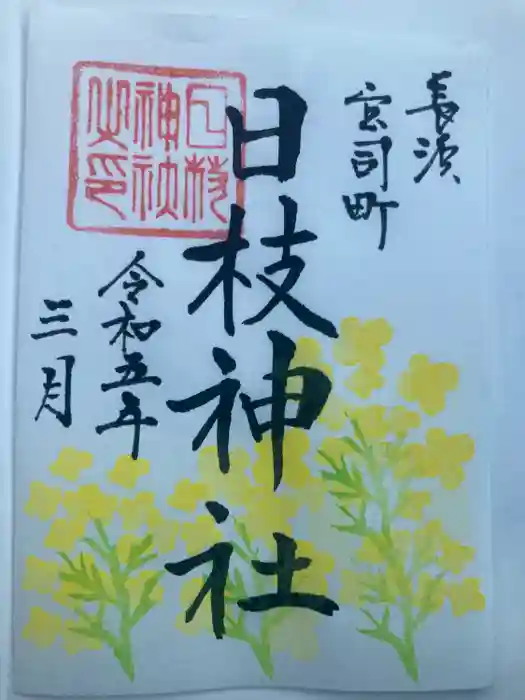 長濱
宮司町
日枝神社
日枝
神社
之印
令和五年
三月